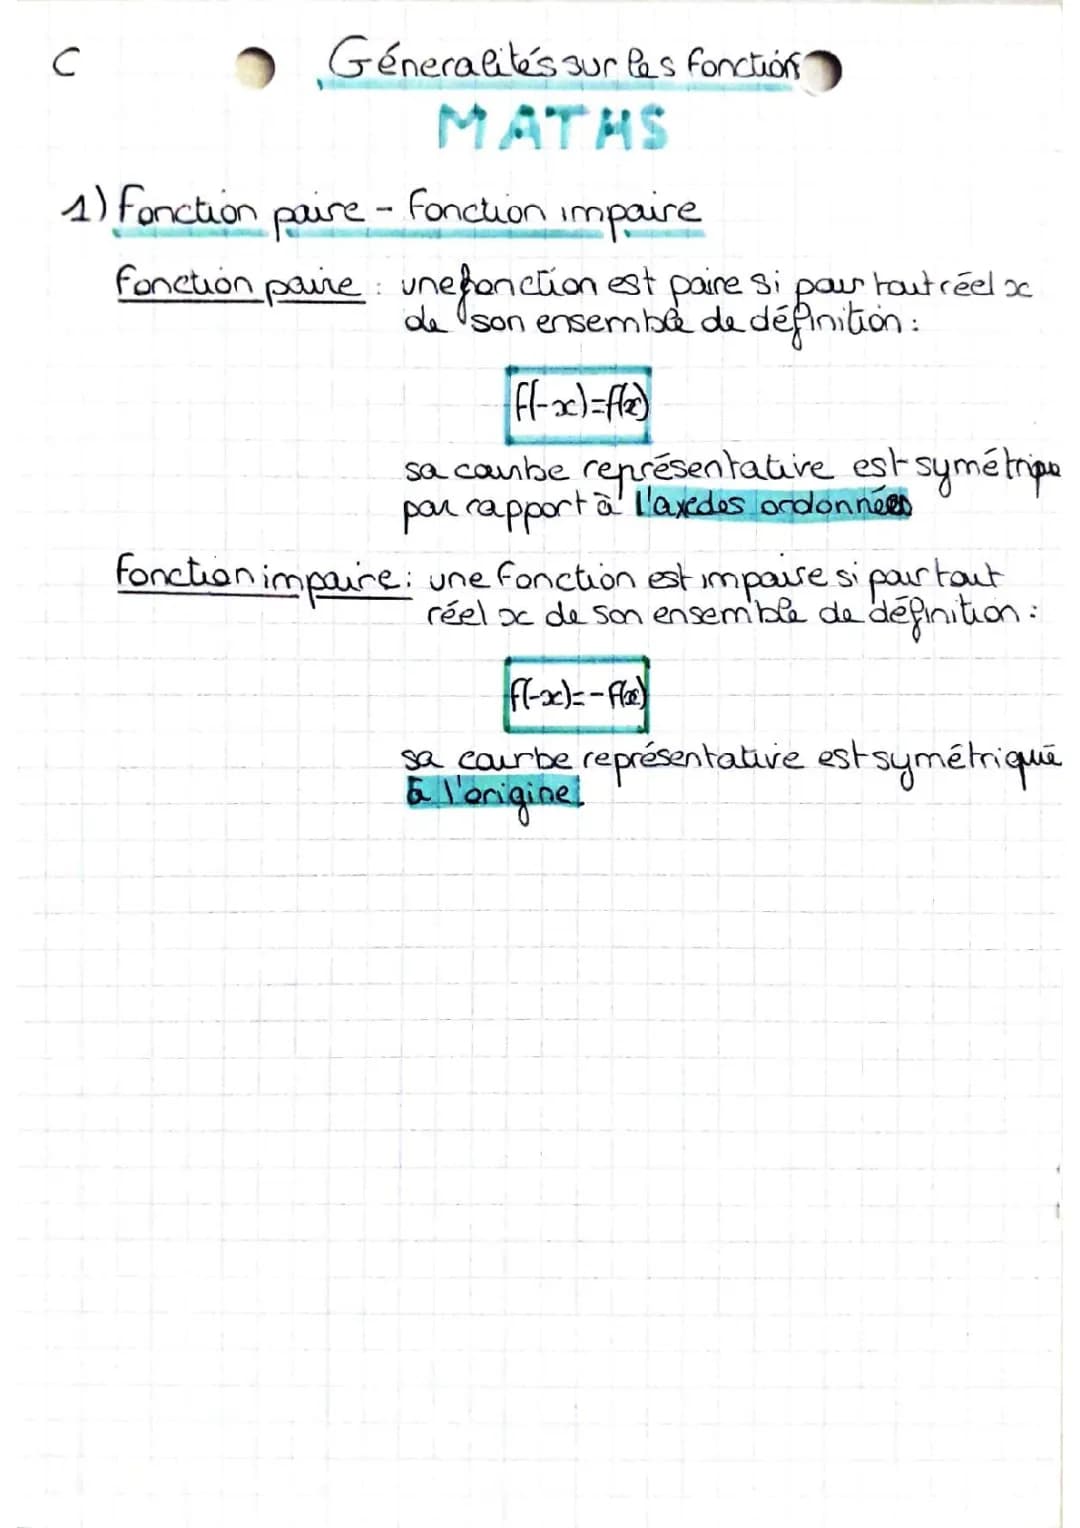 C
Géneralités sur les fonction
MATHS
1) Fonction paire - Fonction impaire
Fonction paire : une fonction est paire si pour tout réel x
de son ensemble de définition :
f(-x)=f(x)
sa courbe représentative est symétrique
par rapport à l'axe des ordonnées
Fonction impaire : une fonction est impaire si pour tout
réel x de son ensemble de définition :
f(-x)=-f(x)
sa courbe représentative est symétrique
à l'origine.